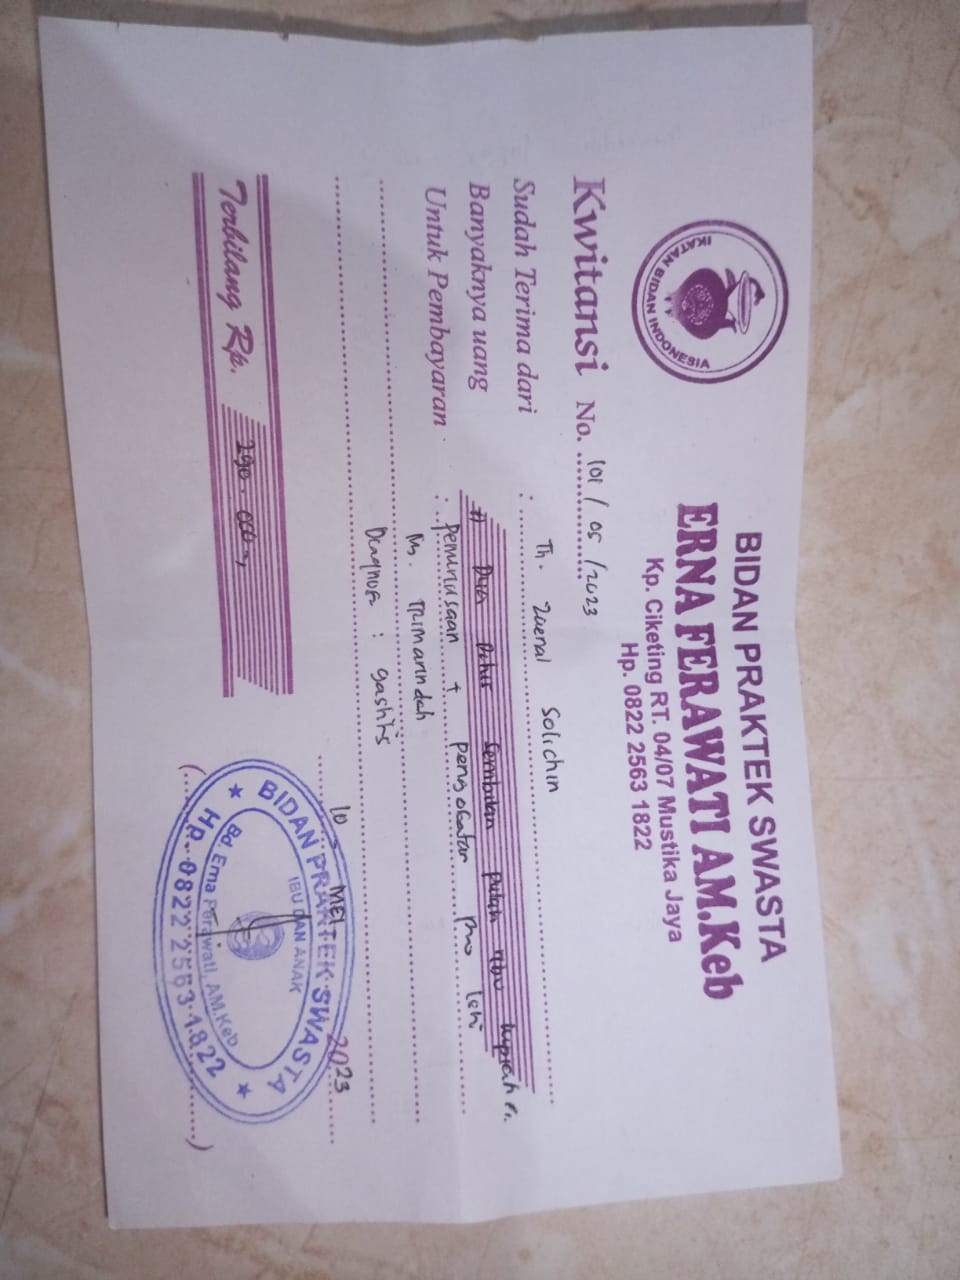 IKATAN BIDAN INDONESIA
BIDAN PRAKTEK SWASTA
ERNA FERAWATI AM.Keb
Kp. Ciketing RT. 04/07 Mustika Jaya
Hp. 0822 2563 1822
Kwitansi No. 101 / 05 / 2023
Sudah Terima dari : Solichin
Banyaknya uang # Dua Ratus sembilan puluh ribu rupiah
Untuk Pembayaran : pemeriksaan + pengobatan
Trimarindah
Diagnosa : gastritis
10 MEI 2023
Terbilang Rp. 290.000,-
BIDAN PRAKTEK SWASTA
IBU DAN ANAK
Bd. Erna Perawati, AM.Keb
Hp. 0822 2563 1822